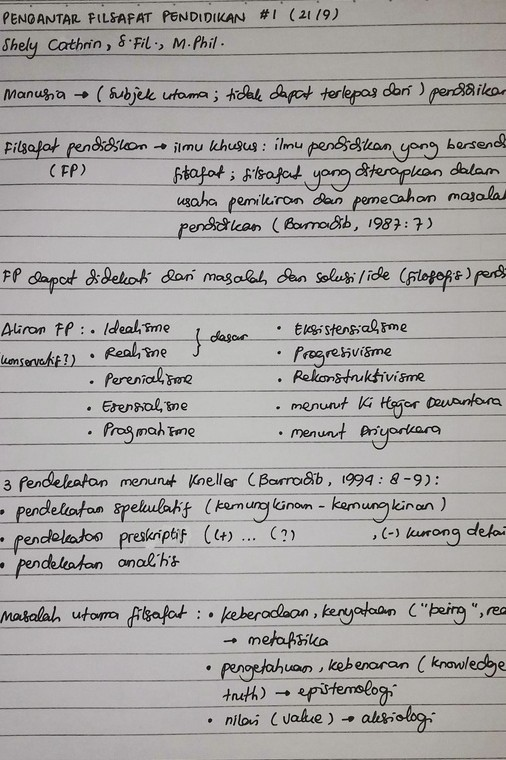 PENGANTAR FILSAFAT PENDIDIKAN #1 (21/9)
Shely Cathrin, S.Fil., M.Phil.
Manusia → (subjek utama; tidak dapat terlepas dari) pendidikan
Filsafat pendidikan → ilmu khusus: ilmu pendidikan yang bersend
(FP) filsafat; filsafat yang diterapkan dalam
usaha pemikiran dan pemecahan masalah
pendidikan (Barnadib, 1987: 7)
FP dapat didekati dari masalah dan solusi/ide (filosofis) pendi
Aliran FP: • Idealisme } dasar • Eksistensialisme
konservatif?) • Realisme • Progresivisme
• Perenialisme • Rekonstruktivisme
• Esensialisme • menurut Ki Hajar Dewantara
• Pragmatisme • menurut Driyarkara
3 Pendekatan menurut Kneller (Barnadib, 1994: 8-9):
• pendekatan spekulatif (kemungkinan-kemungkinan)
• pendekatan preskriptif ((+) ... (?) , (-) kurang detai
• pendekatan analitis
Masalah utama filsafat: • keberadaan, kenyataan ("being", rea
→ metafisika
• pengetahuan, kebenaran (knowledge
truth) → epistemologi
• nilai (value) → aksiologi